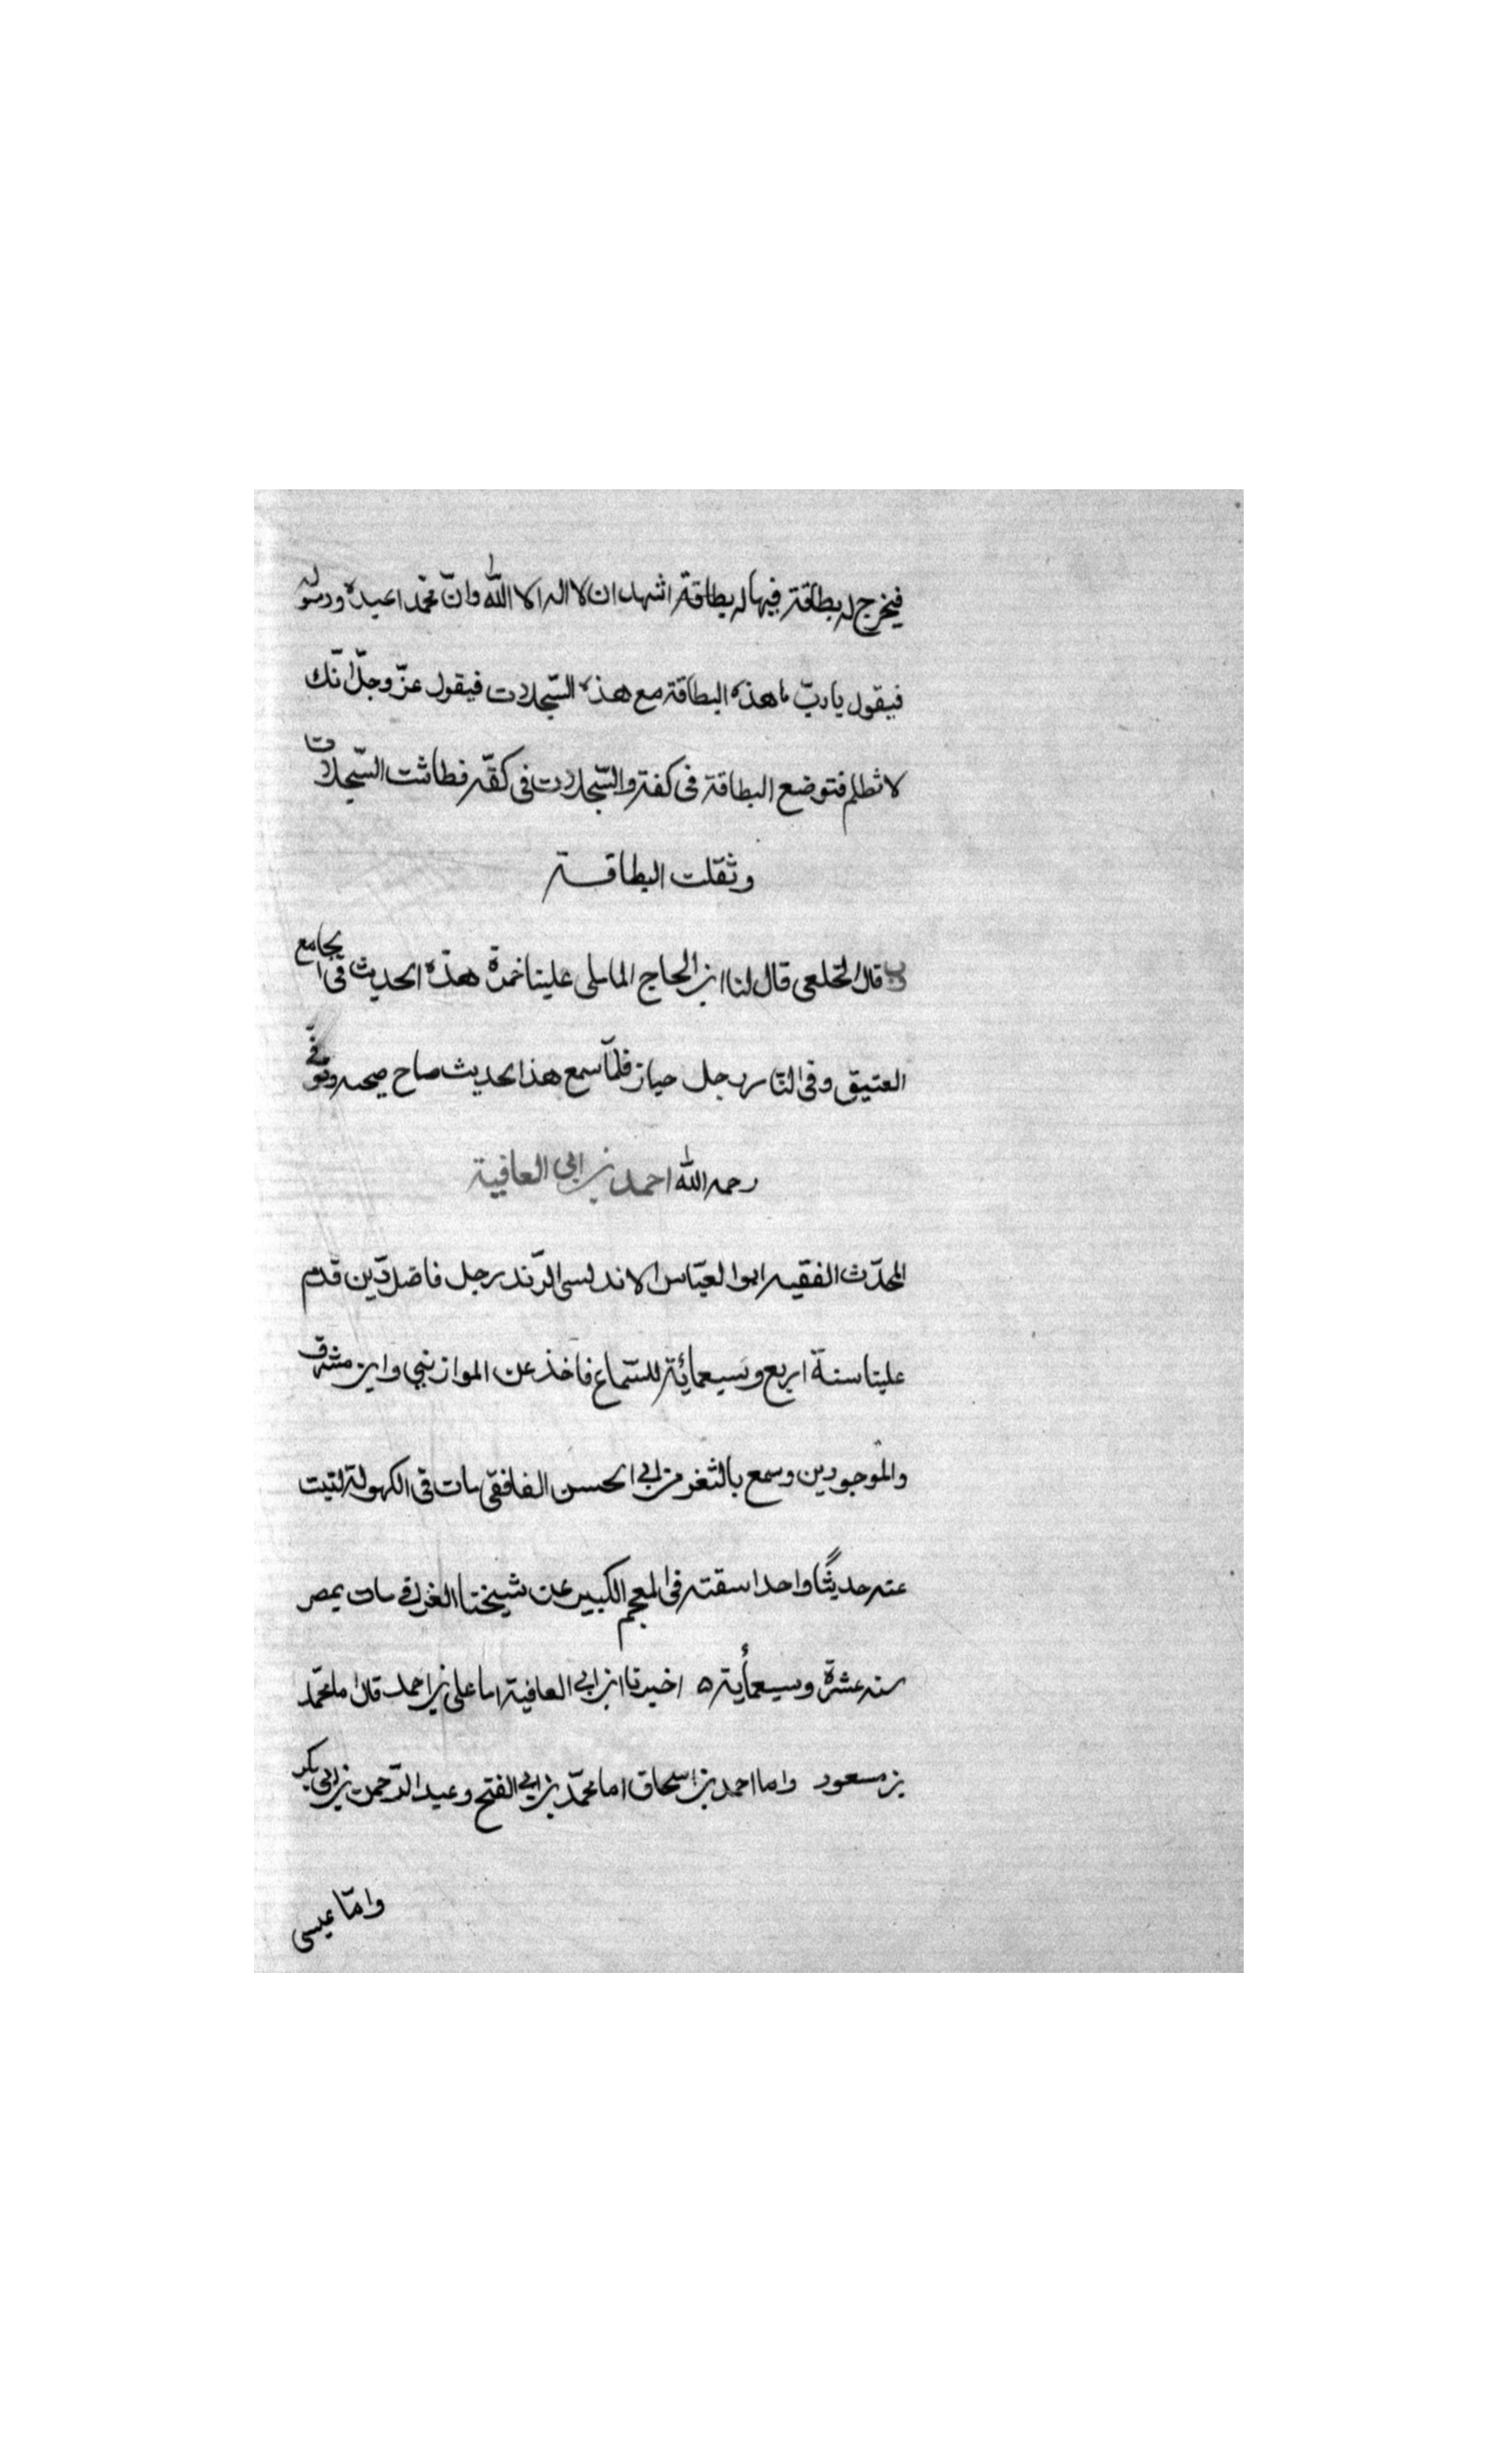 فيخرج له بطاقة فيها له بطاقة اشهد ان لا اله الا الله وانّ محمّدا عبده ورسوله
فيقول يا ربّ ما هذه البطاقة مع هذه السّجلات فيقول عزّ وجلّ انّك
لا تظلم فتوضع البطاقة فى كفة والسّجلات فى كفّه فطاشت السّجلات
وثقلت البطاقة
قال الخلعى قال لنا ابن الحاج لما املى علينا حمزة هذه الحديث فى الجامع
العتيق وفى النّاس رجل فلمّا سمع هذا الحديث صاح صيحه وتوفّى
رحمه الله احمد بن ابى العافية
المحدّث الفقيه ابو العبّاس الاندلسى الرّند رجل فاضل ديّن قدم
علينا سنة اربع وسبعمائة للسّماع فاخذ عن الموازينى وابن مشرّف
والموجودين وسمع بالثغر من ابى الحسن الغافقى مات فى الكهولة كتبت
عنه حديثًا واحدا سقته فى المعجم الكبير عن شيخنا الغرافى مات بمصر
سنه عشرة وسبعمأية ٥ اخبرنا ابن ابى العافية اما على بن احمد قال اما محمّد
بن مسعود واما احمد بن اسحاق اما محمّد بن ابى الفتح وعبد الرّحمن بن ابى بكر
وامّا عيسى